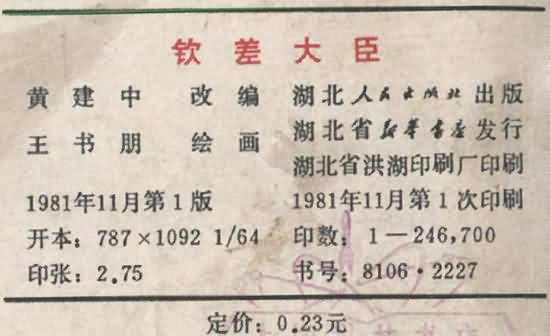 钦差大臣
黄建中 改编
王书朋 绘画
湖北人民出版社出版
湖北省新华书店发行
湖北省洪湖印刷厂印刷
1981年11月第1版
开本：787×1092 1/64
印张：2.75
1981年11月第1次印刷
印数：1—246,700
书号：8106·2227
定价：0.23元